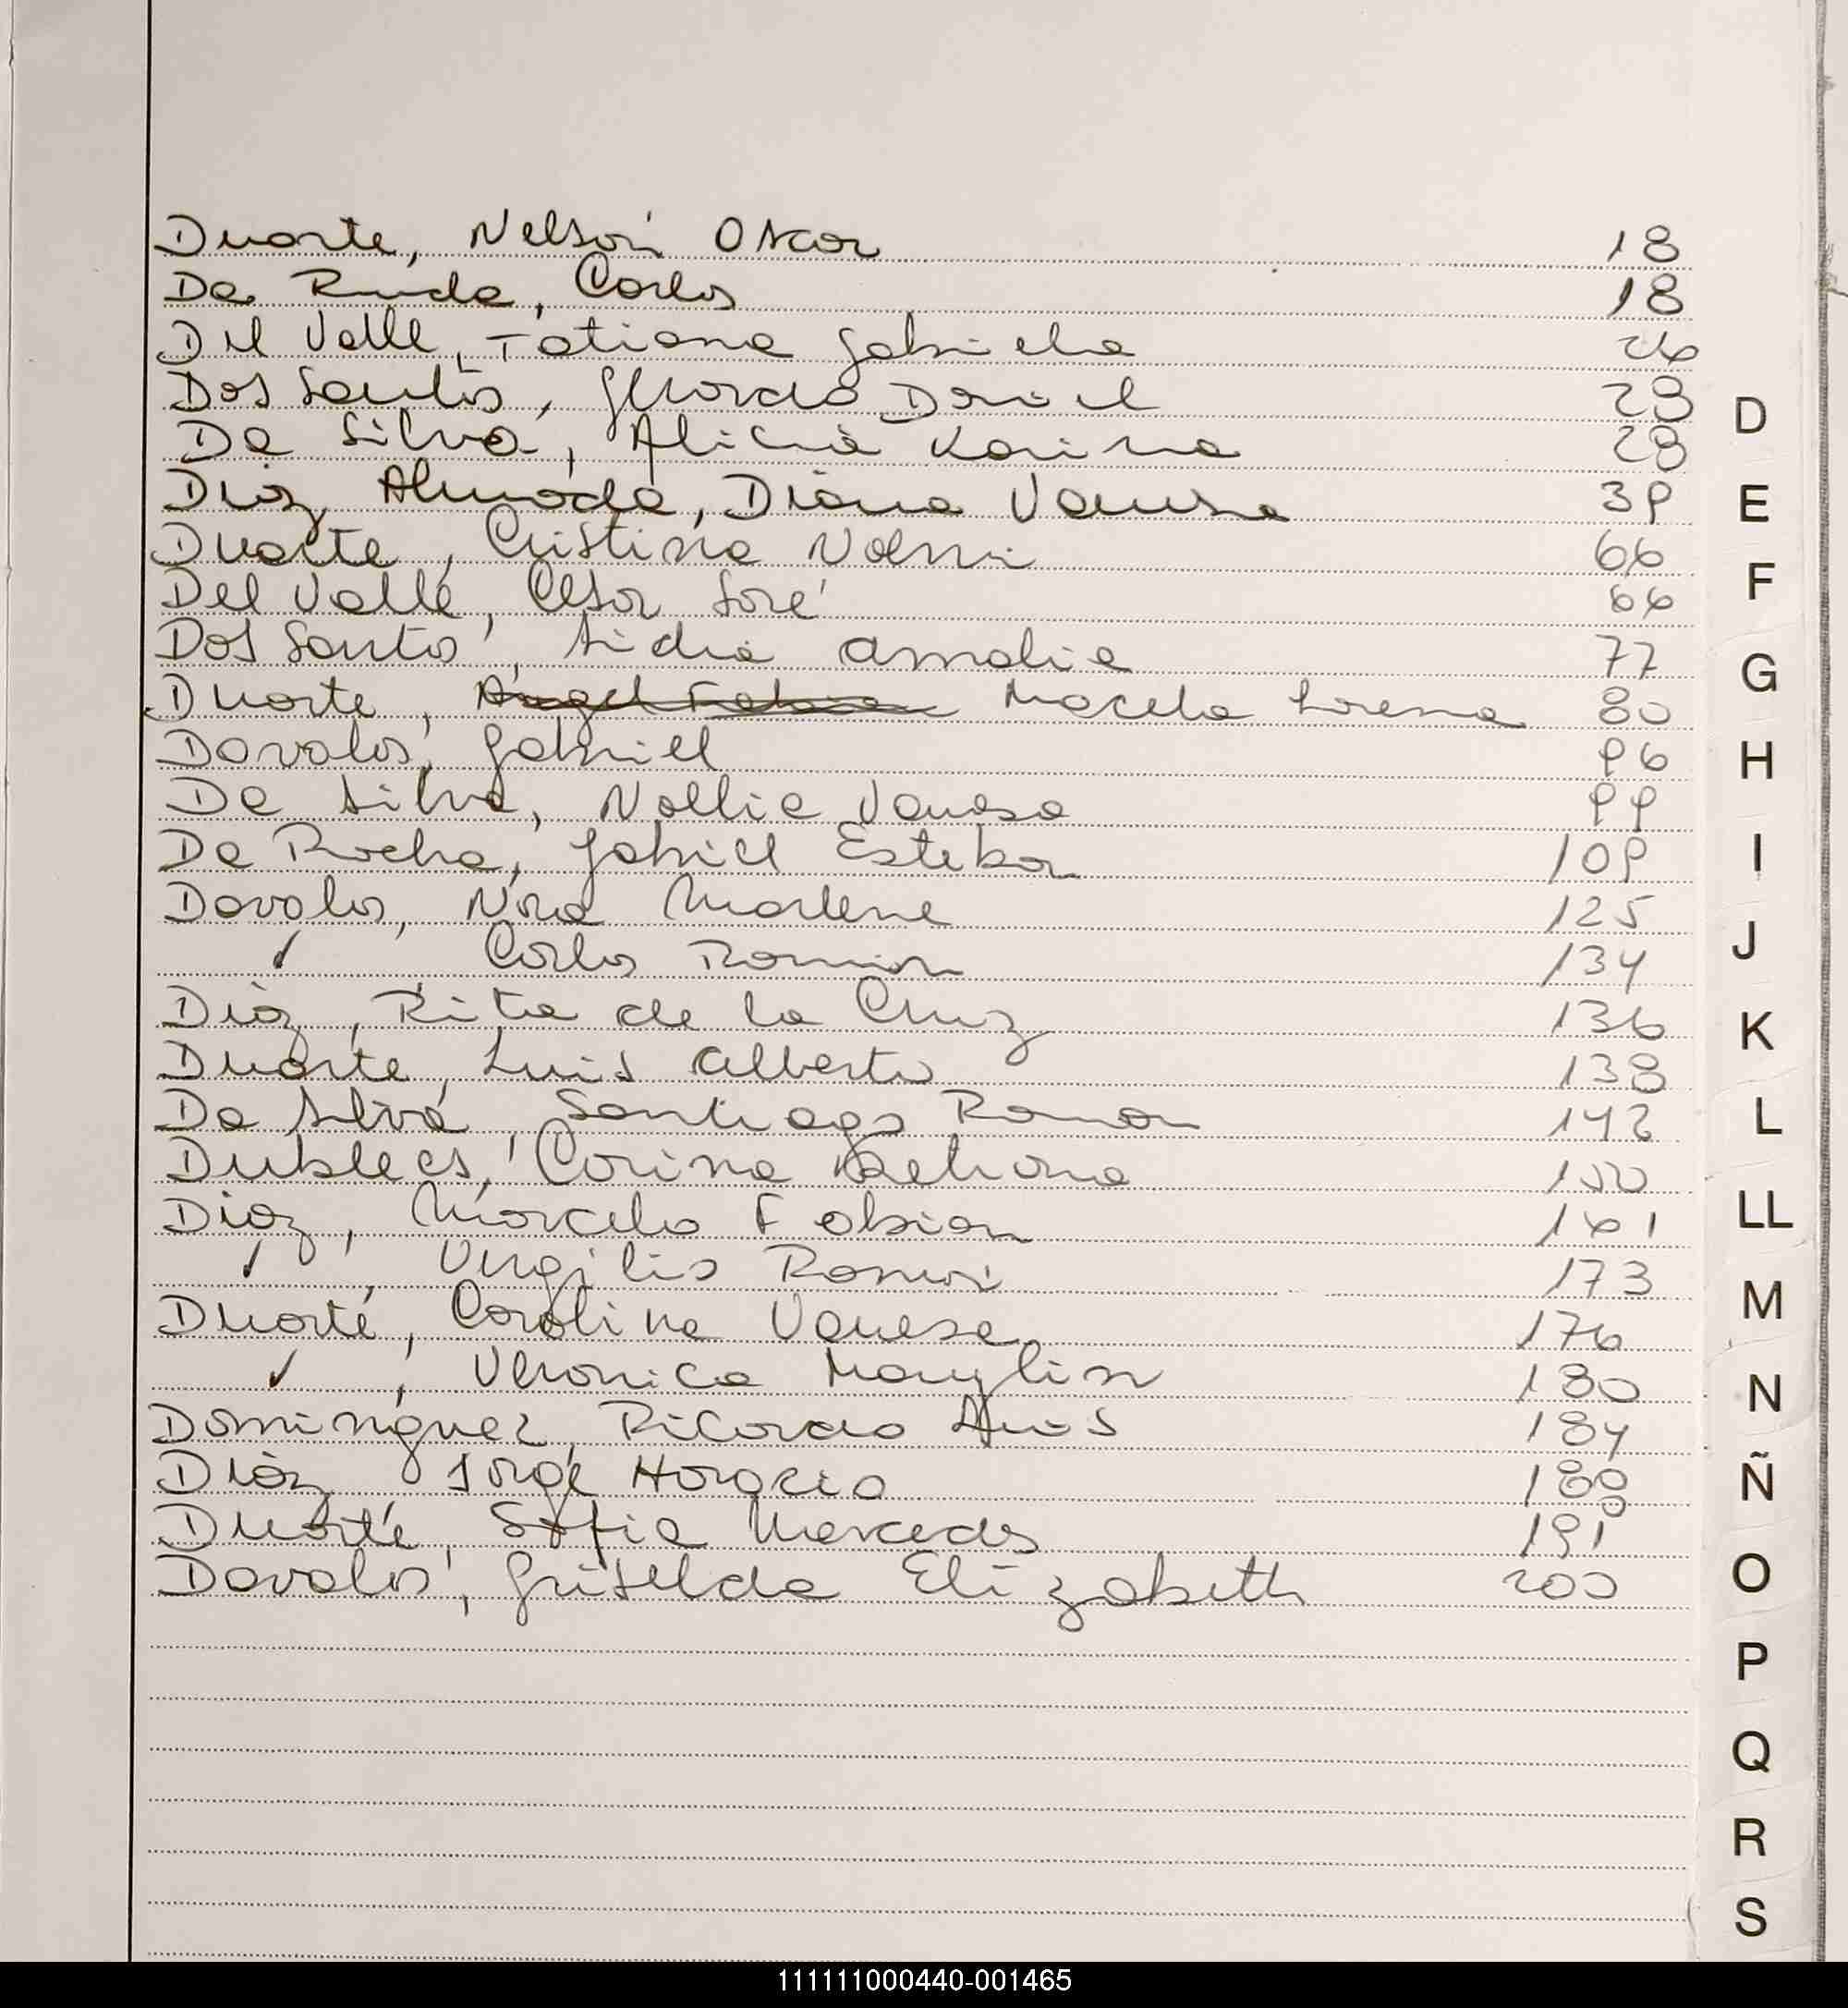 Duarte, Nelson Oscar 18
Da Ruda, Carlos 18
Del Valle, Tatiana Gabriela 26
Dos Santos, Gerardo Daniel 28
Da Silva, Alicia Karina 28
Diaz Almada, Diana Vanesa 39
Duarte, Cristina Noemi 66
Del Valle, Cesar José 66
Dos Santos, Lidia Amalia 77
Duarte, Angel Fabian Marcela Lorena 80
Davalos, Gabriel 96
Da Silva, Nallie Vanesa 99
Da Rocha, Gabriel Esteban 109
Davalos, Nora Marlene 125
✓ Carlos Ramon 134
Diaz, Rita de la Cruz 136
Duarte, Luis Alberto 138
Da Silva, Santiago Ramon 142
Carina 150
Diaz, Marcelo Fabian 161
✓, Virgilio Ramon 173
Duarte, Carolina Vanesa 176
✓, Veronica 180
Dominguez, Ricardo Luis 184
Diaz Jorge Horacio 188
Duarte, Sofia Mercedes 191
Davalos, Griselda Elizabeth 200
D
E
F
G
H
I
J
K
L
LL
M
N
Ñ
O
P
Q
R
S
111111000440-001465